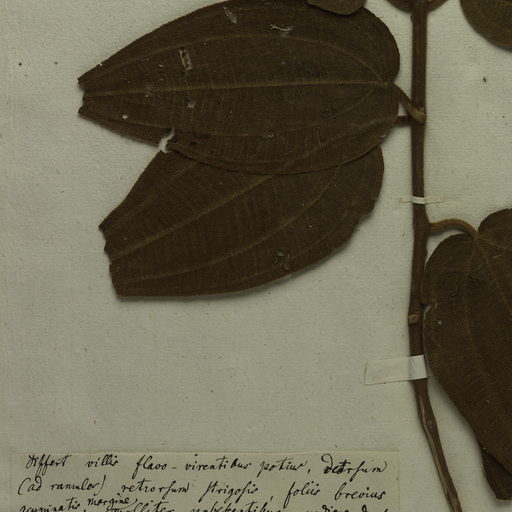 Differt villis flavo-virentibus potius, detrsum
(ad ramulos) retrorsum strigosis, foliis brevius
acuminatis, margine